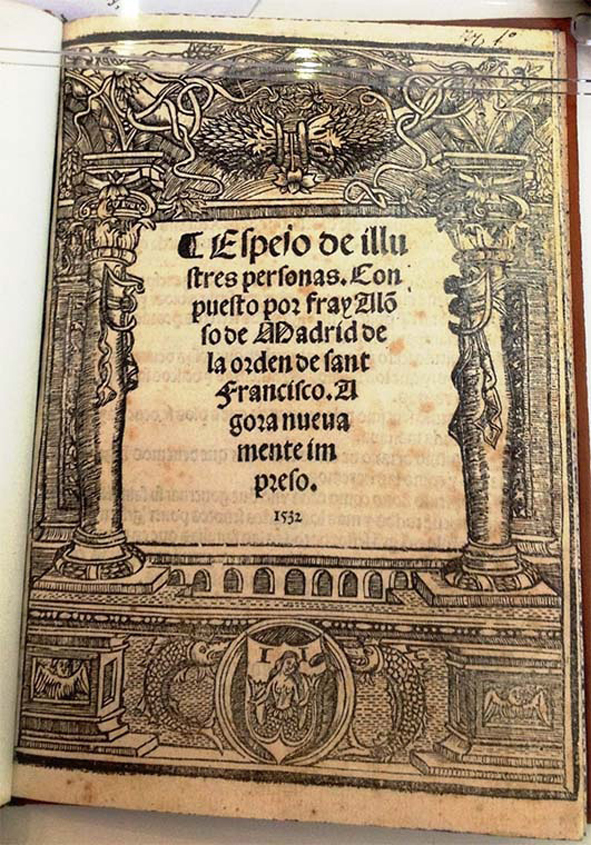 ¶ Espejo de illu
stres personas. Con
puesto por fray Alõ
so de Madrid de
la orden de sant
Francisco. A
gora nueva
mente im
preso.
1532
I L